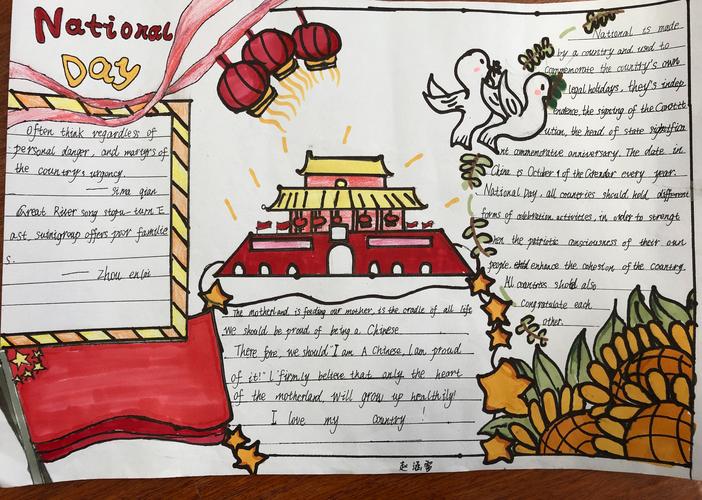 National
Day
Often think regardless of
personal danger, and martyrs of
the country's urgency.
—— Sima qian
Great River song stopu-turn E
ast, suingroup offers poor familie
s.
—— Zhou enlai
The motherland is feeding our mother, is the cradle of all life
We should be proud of being a Chinese
There fore, we should "I am A Chinese, I am proud
of it!" I firmly believe that only the heart
of the motherland, Will grow up healthily!
I love my country!
National is made
by a country and used to
commemorate the country's own
legal holidays, they's indep
endence, the signing of the Constit
ution, the head of state significa
nt commemorative anniversary. The date in
China is October 1 of the Calendar every year.
National Day, all countries should hold different
forms of celebration activities, in order to strengt
hen the patriotic consciousness of their own
people, enhance the cohesion of the country.
All countries should also
Congratulate each
other.